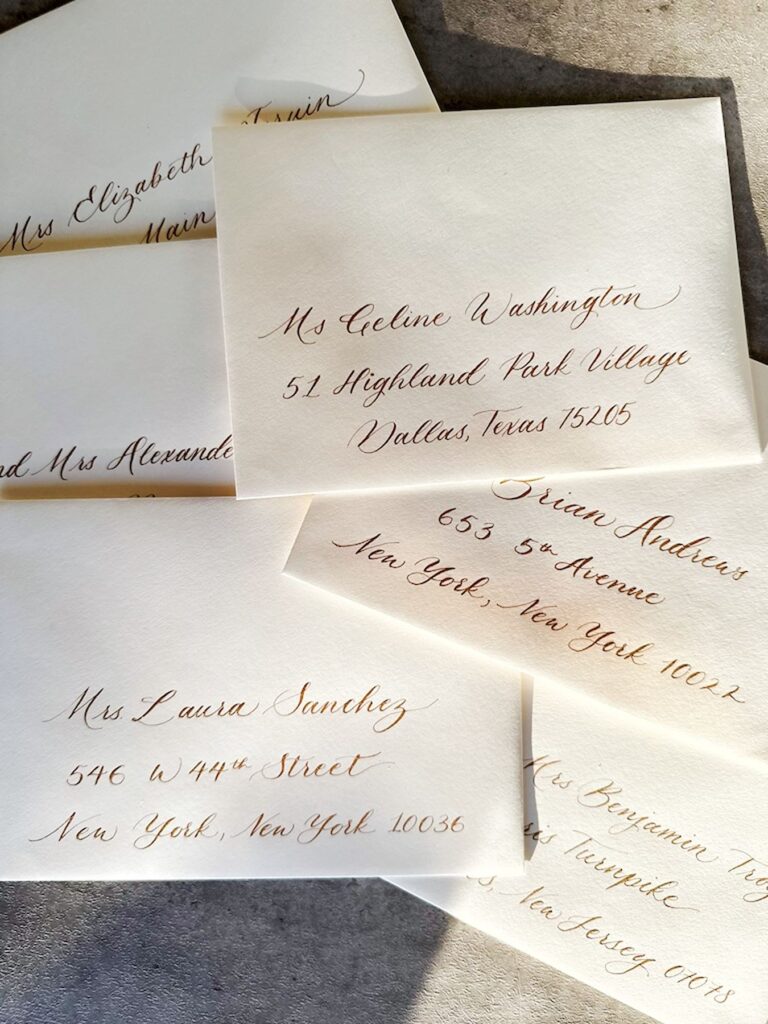 Mrs Elizabeth
Main
Ms Celine Washington
51 Highland Park Village
Dallas, Texas 75205
nd Mrs Alexande
Brian Andrews
653 5th Avenue
New York, New York 10022
Mrs Laura Sanchez
546 W 44th Street
New York, New York 10036
Mrs Benjamin Troy
ris Turnpike
s, New Jersey 07078